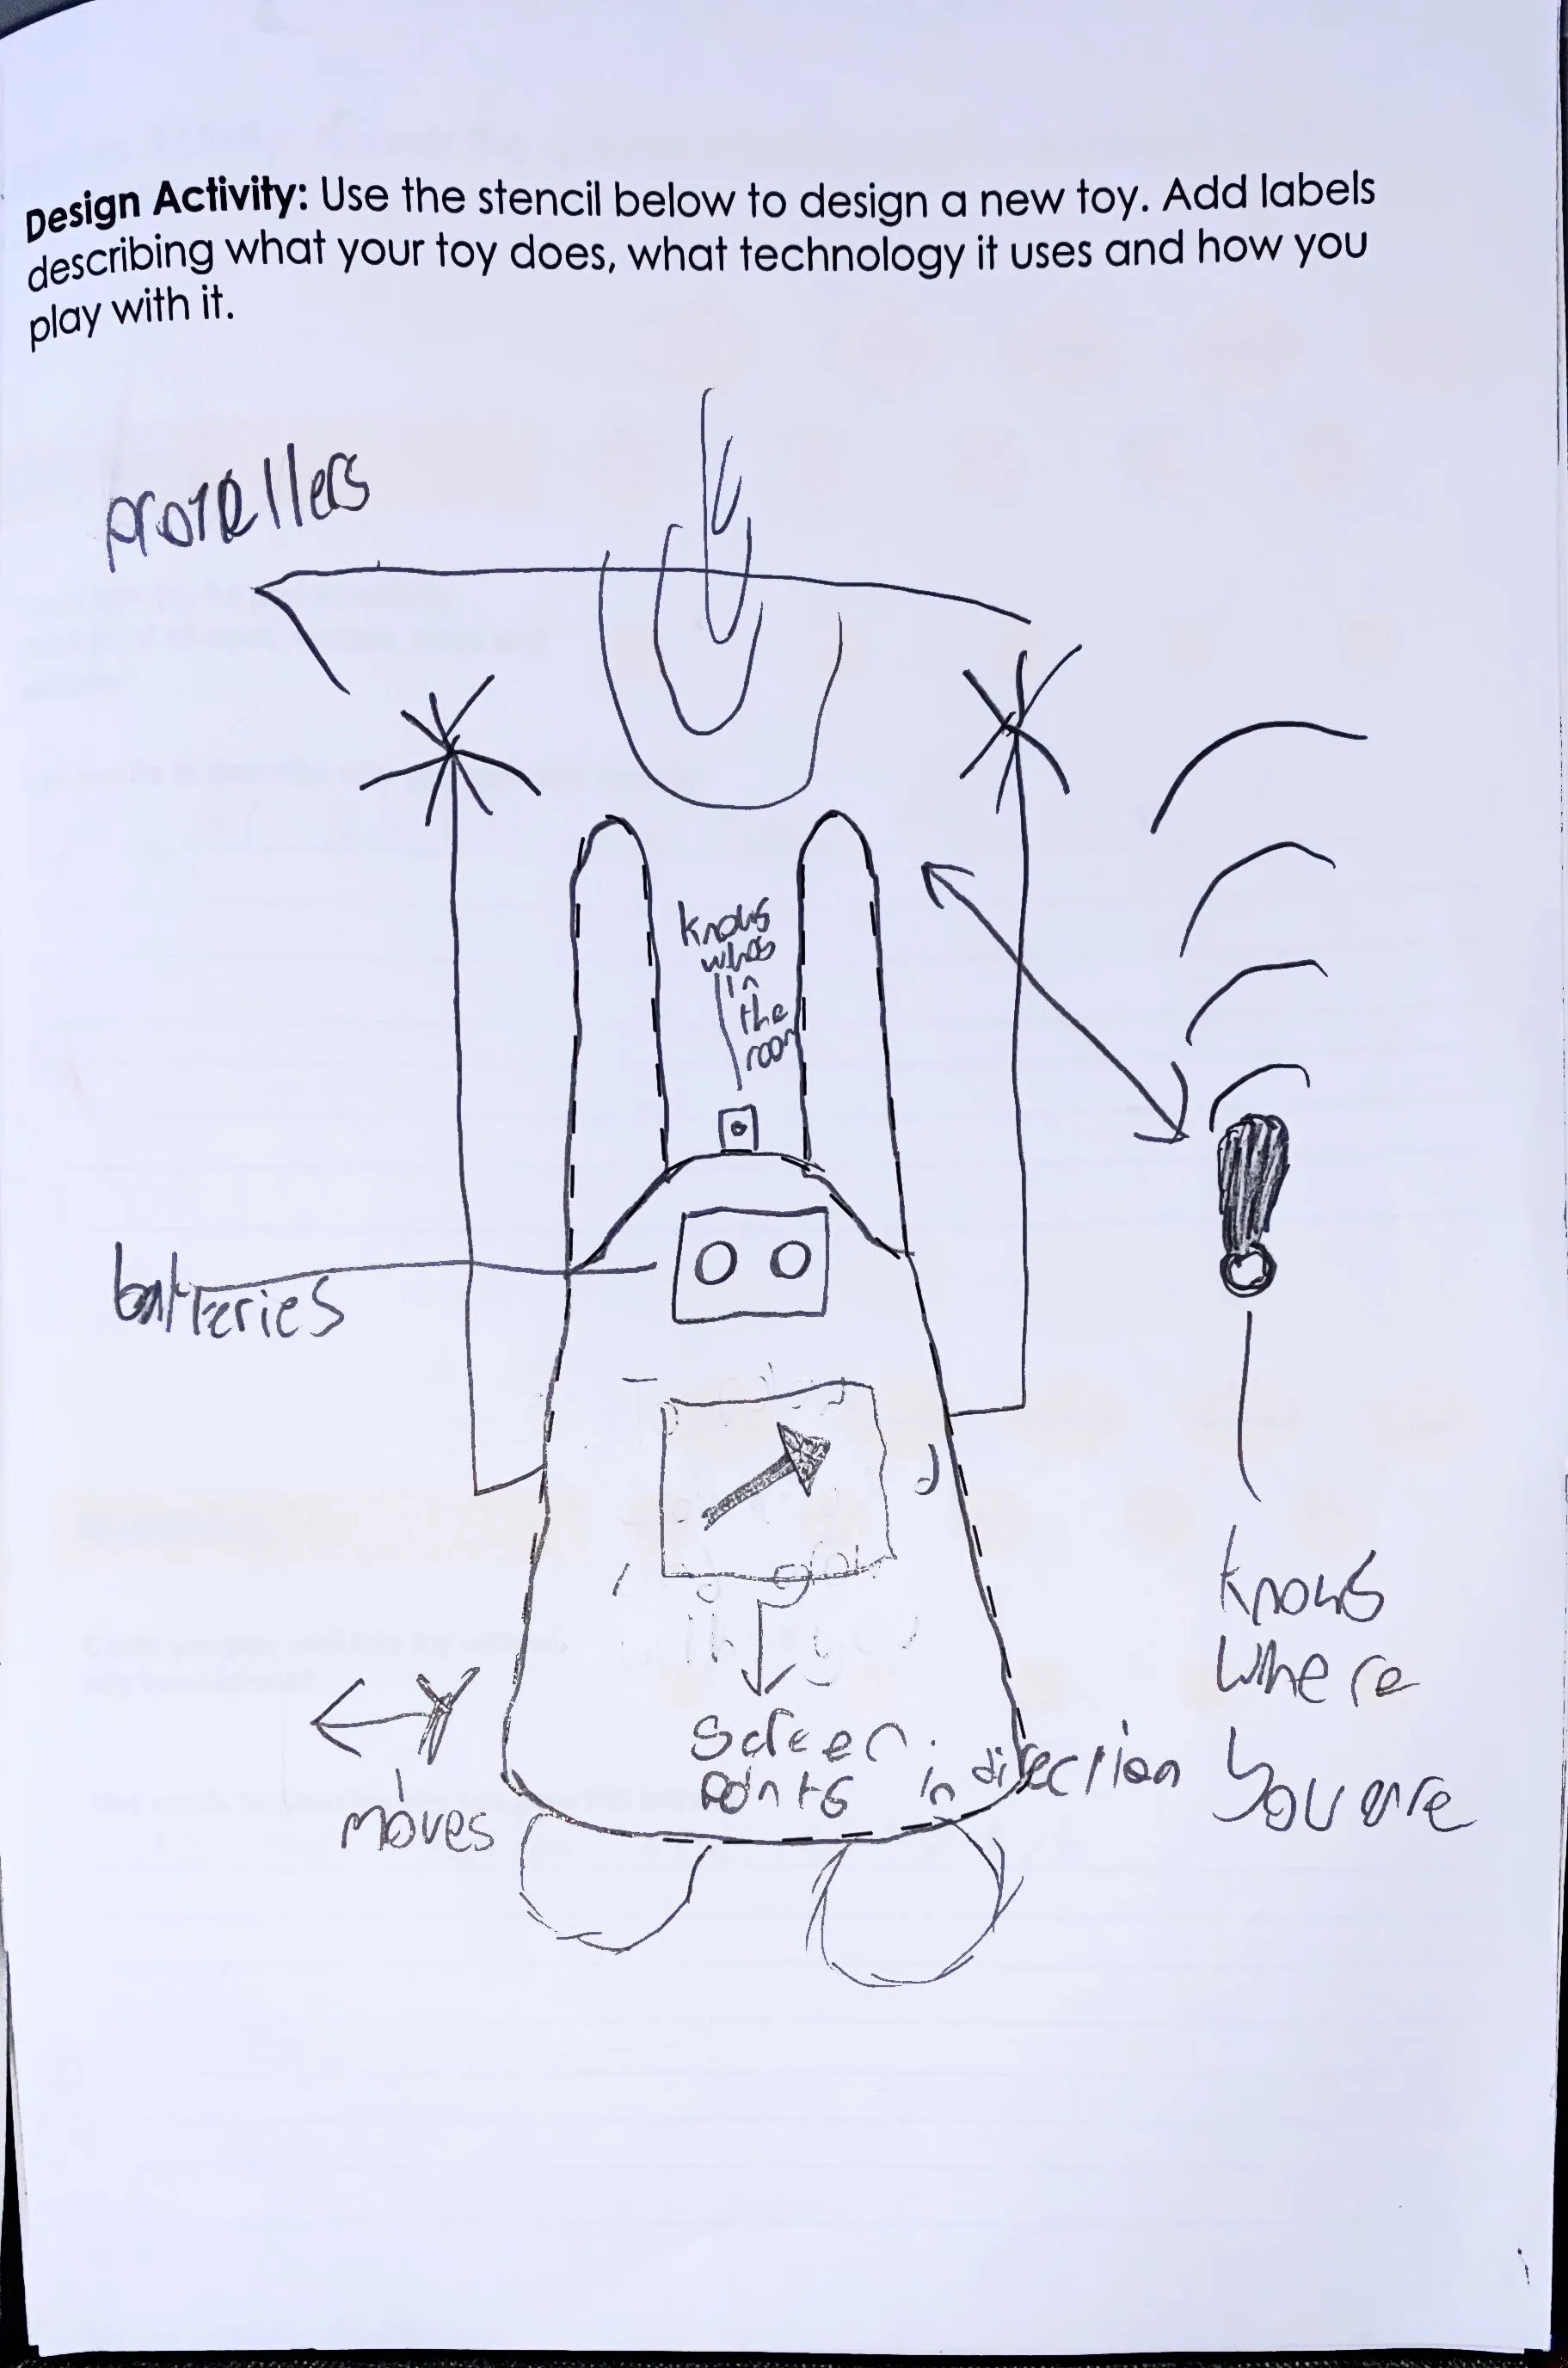 Design Activity: Use the stencil below to design a new toy. Add labels
describing what your toy does, what technology it uses and how you
play with it.
propellers
knows
whos
in
the
room
batteries
screen
points in direction
moves
knows
where
you are